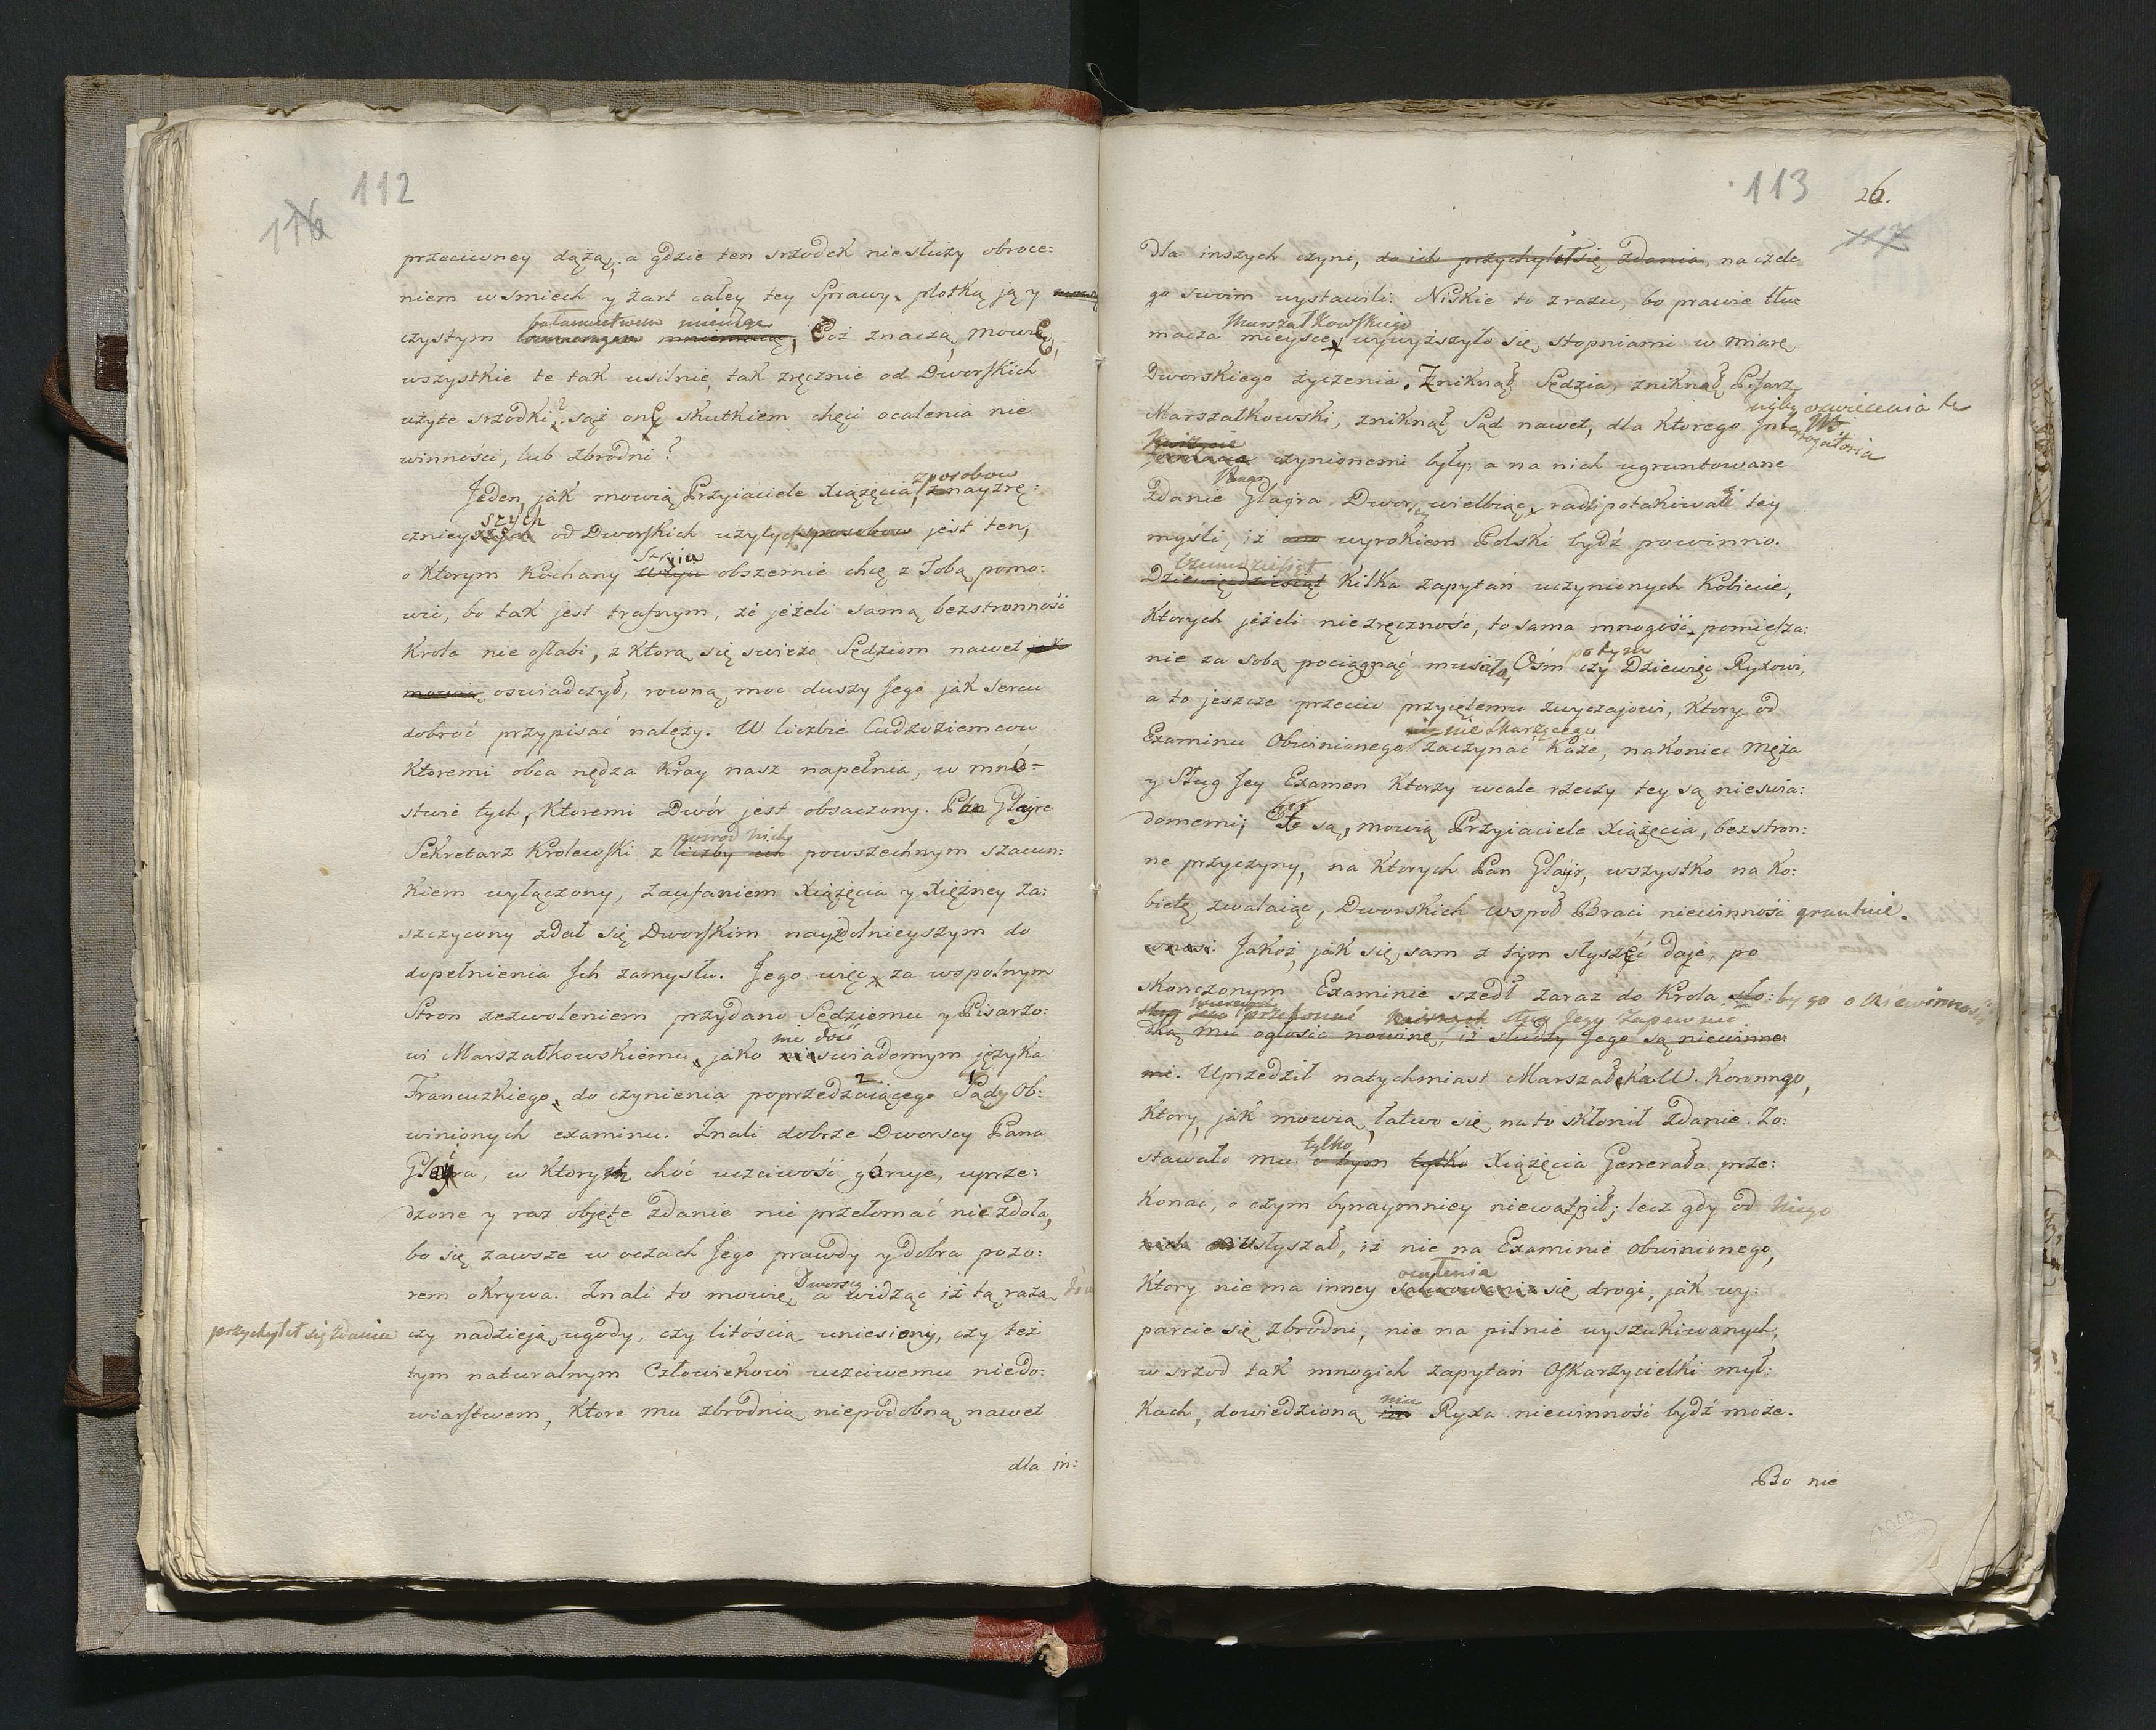 112
116
przeciwney dążą, a gdzie ten srzodek niesłuży obroce:
niem w smiech y żart całey tey Sprawy, plotką ją y
bałamuctwem mieniąc
czystym Coż znaczą, mowię,
wszystkie te tak usilnie, tak zręcznie od Dworskich
użyte srzodki? sąż one skutkiem chęci ocalenia nie
winności, lub zbrodni?
zposobow
Jeden, jak mowią Przyiaciele Xiążęcia, znayzrę:
szych
czniey od Dworskich użytych sposobow jest ten,
Stryia
o ktorym Kochany Wuju obszernie chcę z Tobą pomo:
wić, bo tak jest trafnym, że jeżeli samą bezstronność
Krola nie osłabi, z ktorą się swieżo Sędziom nawet jak
mowią, oswiadczył, rowną moc duszy Jego jak sercu
dobroć przypisać należy. W liczbie Cudzoziemcow
ktoremi obca nędza Kray nasz napełnia, w mno-
stwie tych, ktoremi Dwór jest obsaczony. Pan Glayre
pośrod nich
Sekretarz Krolewski z liczby ich powszechnym szacun:
kiem wyłączony, zaufaniem Xiążęcia y Xiężney za:
szczycony zdał się Dworskim nayzdolnieyszym do
dopełnienia Jch zamysłu. Jego więc za wspolnym
Stron zezwoleniem przydano Sędziemu y Pisarzo:
nie dość
wi Marszałkowskiemu, jako nieswiadomym języka
Francuzkiego, do czynienia poprzedzaiącego Sądy Ob:
winionych examinu. Znali dobrze Dworscy Pana
Glayra, w ktorym choć uczciwość góruje, uprze:
dzone y raz objęte zdanie nic przełomać nie zdoła,
bo się zawsze w oczach Jego prawdy y dobra pozo:
Dworscy
rem okrywa. Znali to mowię, a widząc iż tą rażą
przychylił się zdaniu
czy nadzieją ugody, czy litością uniesiony, czy też
tym naturalnym Człowiekowi uczciwemu niedo:
wiarstwem, ktore mu zbrodnią niepodobną nawet
dla in:
113
26.
117
dla inszych czyni, do ich przychylił się zdania, na czele
go swoim wystawili. Niskie to zrazu, bo prawie tłu:
Marszałkowskiego
macza mieysce, wywyższyło się stopniami w miarę
Dworskiego życzenia. Zniknął Sędzia, zniknął Pisarz
niby oswiecenia te
Marszałkowski, zniknął Sąd nawet, dla ktorego Interrogatoria
czynionemi były; a na nich ugruntowane
Pana
zdanie Glayra Dworscy wielbiąc, radzi potakiwali tey
mysli, iż ono wyrokiem Polski bydź powinno.
Osiemdziesiąt
Dziewięćdziesiąt kilka zapytań uczynionych Kobiecie,
ktorych jeżeli niezręczność, to sama mnogość pomiesza:
potym
nie za sobą pociągnąć musiała, Osm czy Dziewięć Ryxowi,
a to jeszcze przeciw przyiętemu zwyczajowi, ktory od
nie skarżącego
Examinu Obwinionego zaczynać każe, nakoniec męża
y Sług Jey Examen ktorzy wcale rzeczy tey są nieswia:
domemi; Te są, mowią Przyiaciele Xiążęcia, bezstron:
ne przyczyny, na ktorych Pan Glayr, wszystko na Ko:
bietę zwalaiąc, Dworskich wspoł Braci niewinność gruntuie.
Jakoż, jak się sam z tym słyszeć daje, po
skonczonym Examinie szedł zaraz do Krola by go o niewinności
sług Jego zapewnić
mu ogłosić nowinę, iż słudzy Jego są niewinne
mi. Uprzedził natychmiast Marszałka W. Koronngo,
ktory, jak mowią, łatwo się na to skłonił zdanie. Zo:
tylko
stawało mu o tym tylko Xiążęcia Generała prze:
konać, o czym bynaymniey niewątpił; lecz gdy od niego
nich usłyszał, iż nie na Examinie obwinionego,
ocalenia
ktory niema inney się drogi, jak wy:
parcie się zbrodni, nie na pilnie wyszukiwanych,
w srzod tak mnogich zapytań Oskarzycielki mył:
kach, dowiedzioną Ryxa niewinność bydź może.
Bo nie
AGAD